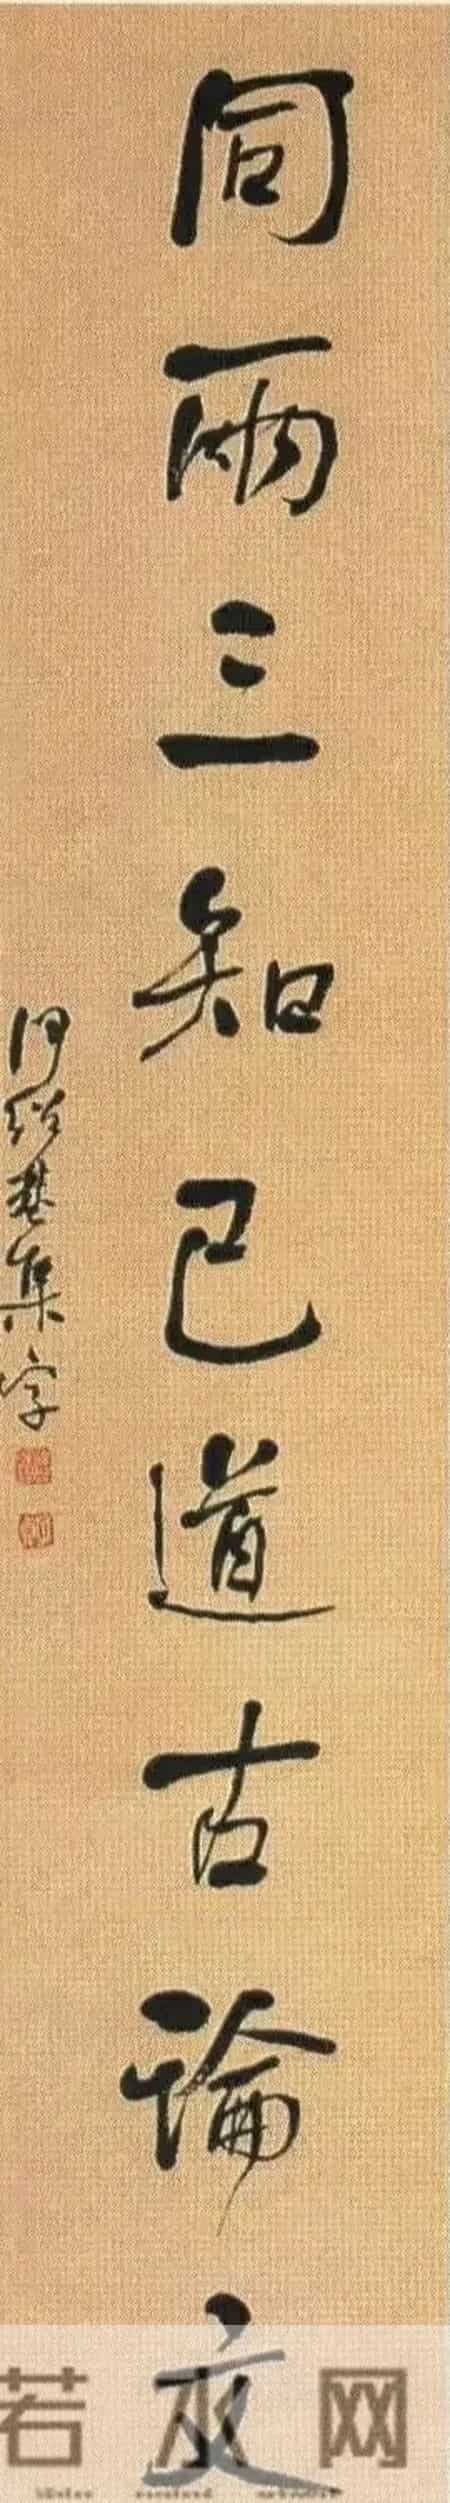 同兩三知己道古論文
何紹基集字
若水网